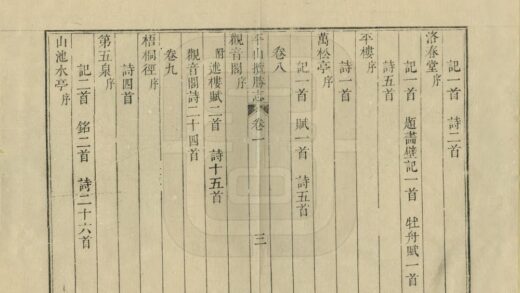 洛春堂序
記一首 詩二首
記一首 題畵壁記一首 牡丹賦一首
詩五首
平樓序
詩一首
萬松亭序
記一首 賦一首 詩五首
卷八
平山攬勝志 卷一 三
觀音閣序
附 進樓賦二首 詩十五首
觀音閣詩二十四首
卷九
梧桐徑序
詩四首
第五泉序
記二首 銘二首 詩二十六首
山池水亭序